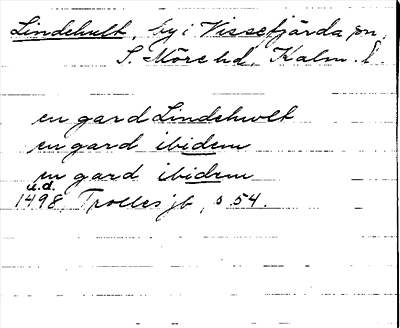 Lindehult, by i Vissefjärda sn,
S. Möre hd, Kalm. l.
en gard Lindehwlt
en gard ibidem
en gard ibidem
u.d.
1498, Trolles jb, s. 54.